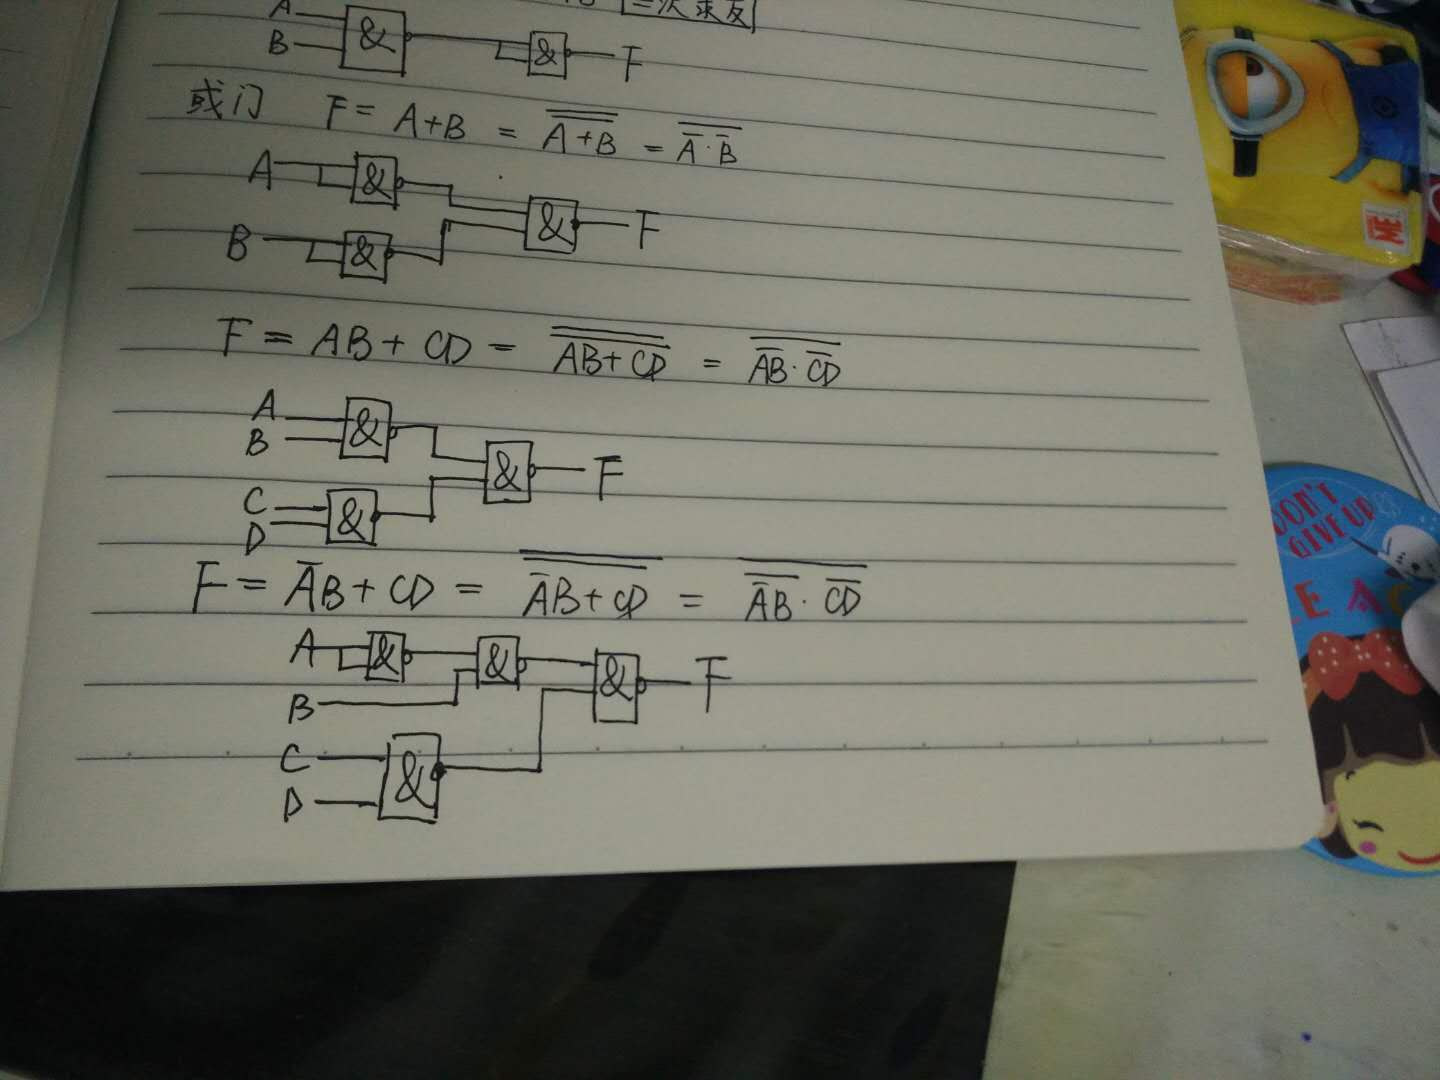 二次求反
A
B
&
&
F
或门 F = A+B = \overline{\overline{A+B}} = \overline{\overline{A}·\overline{B}}
A
&
B
&
&
F
F = AB + CD = \overline{\overline{AB+CD}} = \overline{\overline{AB}·\overline{CD}}
A
B
&
C
D
&
&
F
F = \overline{A}B + CD = \overline{\overline{\overline{A}B+CD}} = \overline{\overline{\overline{A}B}·\overline{CD}}
A
&
&
&
F
B
C
D
&
ME
DON'T
GIVE UP